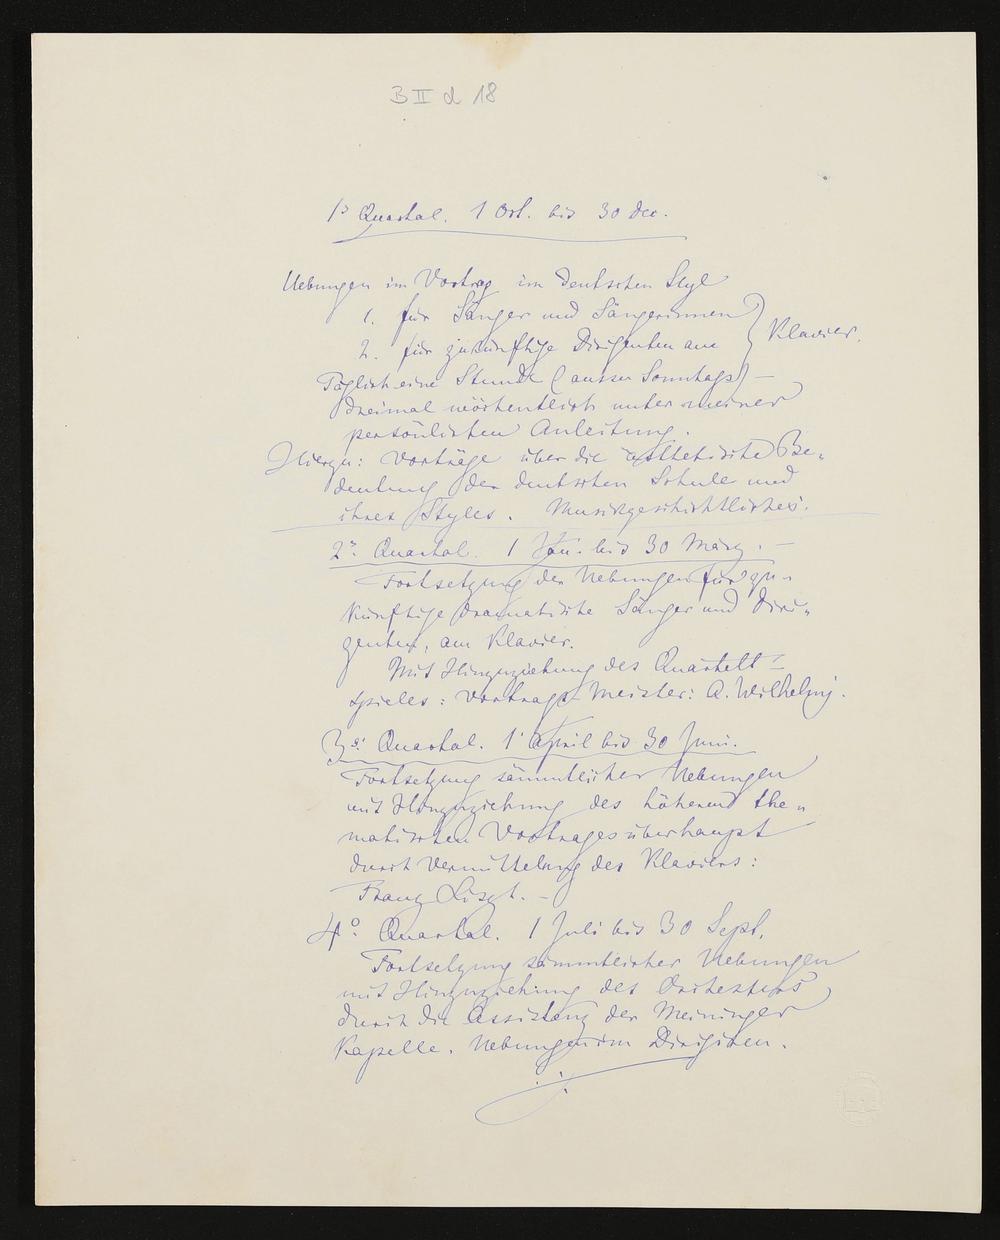 B II d 18
1s Quartal. 1 Oct. bis 30 Dec.
Uebungen im Vortrag im deutschen Styl
1. für Sänger und Sängerinnen
2. für zukünftige Dirigenten am } Klavier.
Täglich eine Stunde (ausser Sonntags) –
dreimal wöchentlich unter meiner
persönlichen Anleitung.
Hierzu: Vorträge über die ästhetische Be-
deutung der deutschen Schule und
ihres Styles. Musikgeschichtliches.
2s Quartal. 1 Jan. bis 30 März. –
Fortsetzung der Uebungen für zu-
künftige dramatische Sänger und Diri-
genten, am Klavier.
Mit Hinzuziehung des Quartett-
spieles: Vortrags Meister: A. Wilhelmj.
3s: Quartal. 1 April bis 30 Juni.
Fortsetzung sämmtlicher Uebungen
mit Hinzuziehung des höheren the-
matischen Vortrages überhaupt
durch Vermittelung des Klaviers:
Franz Liszt. –
4o: Quartal. 1 Juli bis 30 Sept.
Fortsetzung sämmtlicher Uebungen
mit Hinzuziehung des Orchesters
durch die Assistenz der Meininger
Kapelle. Uebungen im Dirigiren.